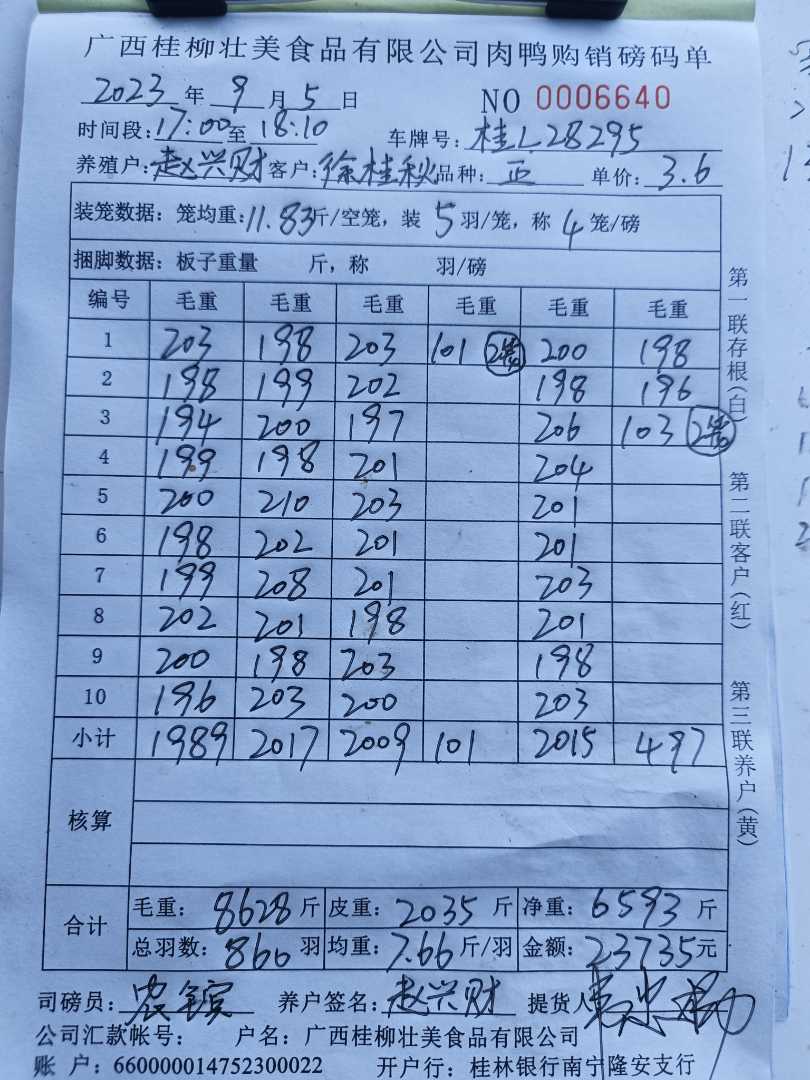 广西桂柳壮美食品有限公司肉鸭购销磅码单
2023年 9月 5日 NO 0006640
时间段:17:00至 18:10 车牌号:桂L28295
养殖户:赵兴财 客户:徐桂秋 品种:正 单价:3.6
装笼数据:笼均重:11.83斤/空笼,装 5 羽/笼,称 4 笼/磅
捆脚数据:板子重量 斤,称 羽/磅
编号 毛重 毛重 毛重 毛重 毛重 毛重
1 203 198 203 101 2笼 200 198
2 198 199 202 198 196
3 194 200 197 206 103 2笼
4 199 198 201 204
5 200 210 203 201
6 198 202 201 201
7 199 208 201 203
8 202 201 198 201
9 200 198 203 198
10 196 203 200 203
小计 1989 2017 2009 101 2015 497
核算
合计 毛重:8628斤 皮重:2035斤 净重:6593斤
总羽数:860羽 均重:7.66斤/羽 金额:23735元
司磅员: 养户签名:赵兴财 提货人
公司汇款帐号: 户名:广西桂柳壮美食品有限公司
账 户:660000014752300022 开户行:桂林银行南宁隆安支行
第一联存根(白) 第二联客户(红) 第三联养户(黄)